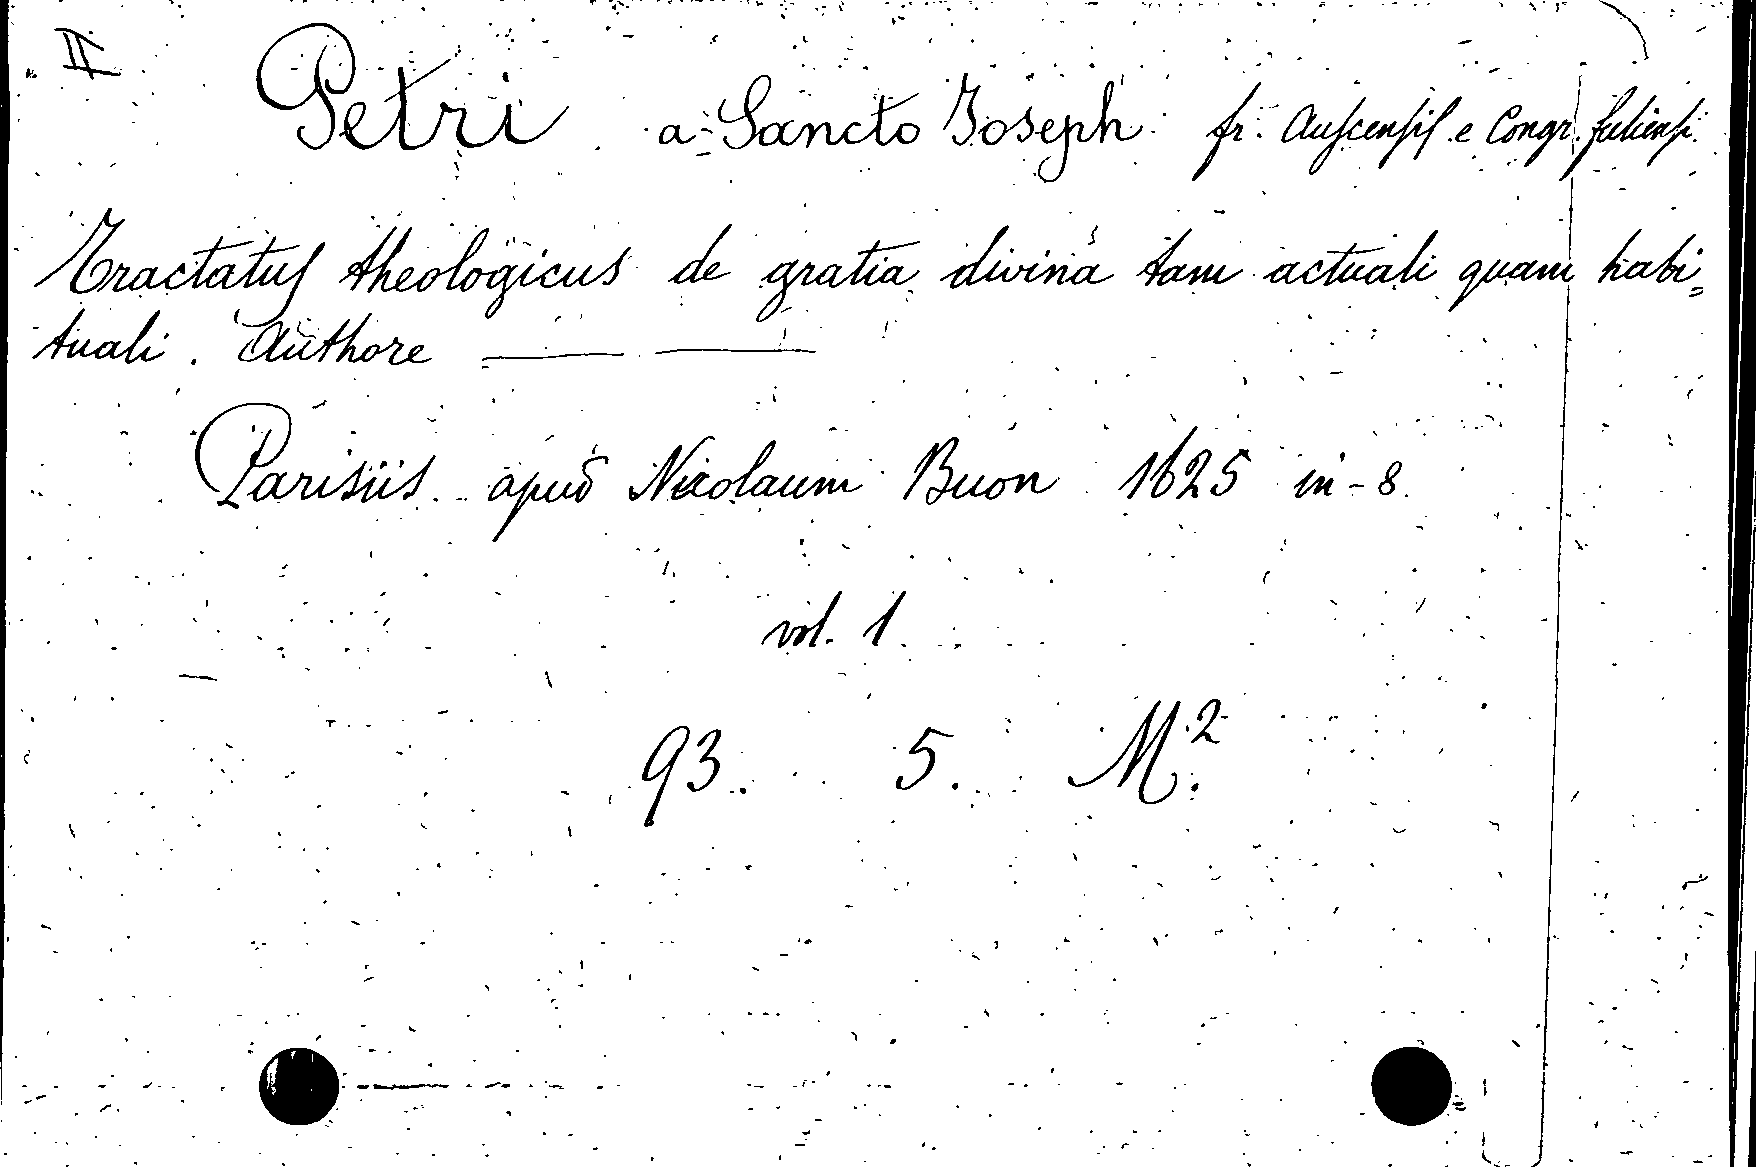 II Petri a Sancto Joseph fr. Auscensis e Congr. fuliensi.
Tractatus theologicus de gratia divinâ tam actuali quam habi=
tuali. Authore ——— ———
Parisiis apud Nicolaum Buon 1625 in-8.
vol. 1
93. 5. M.2